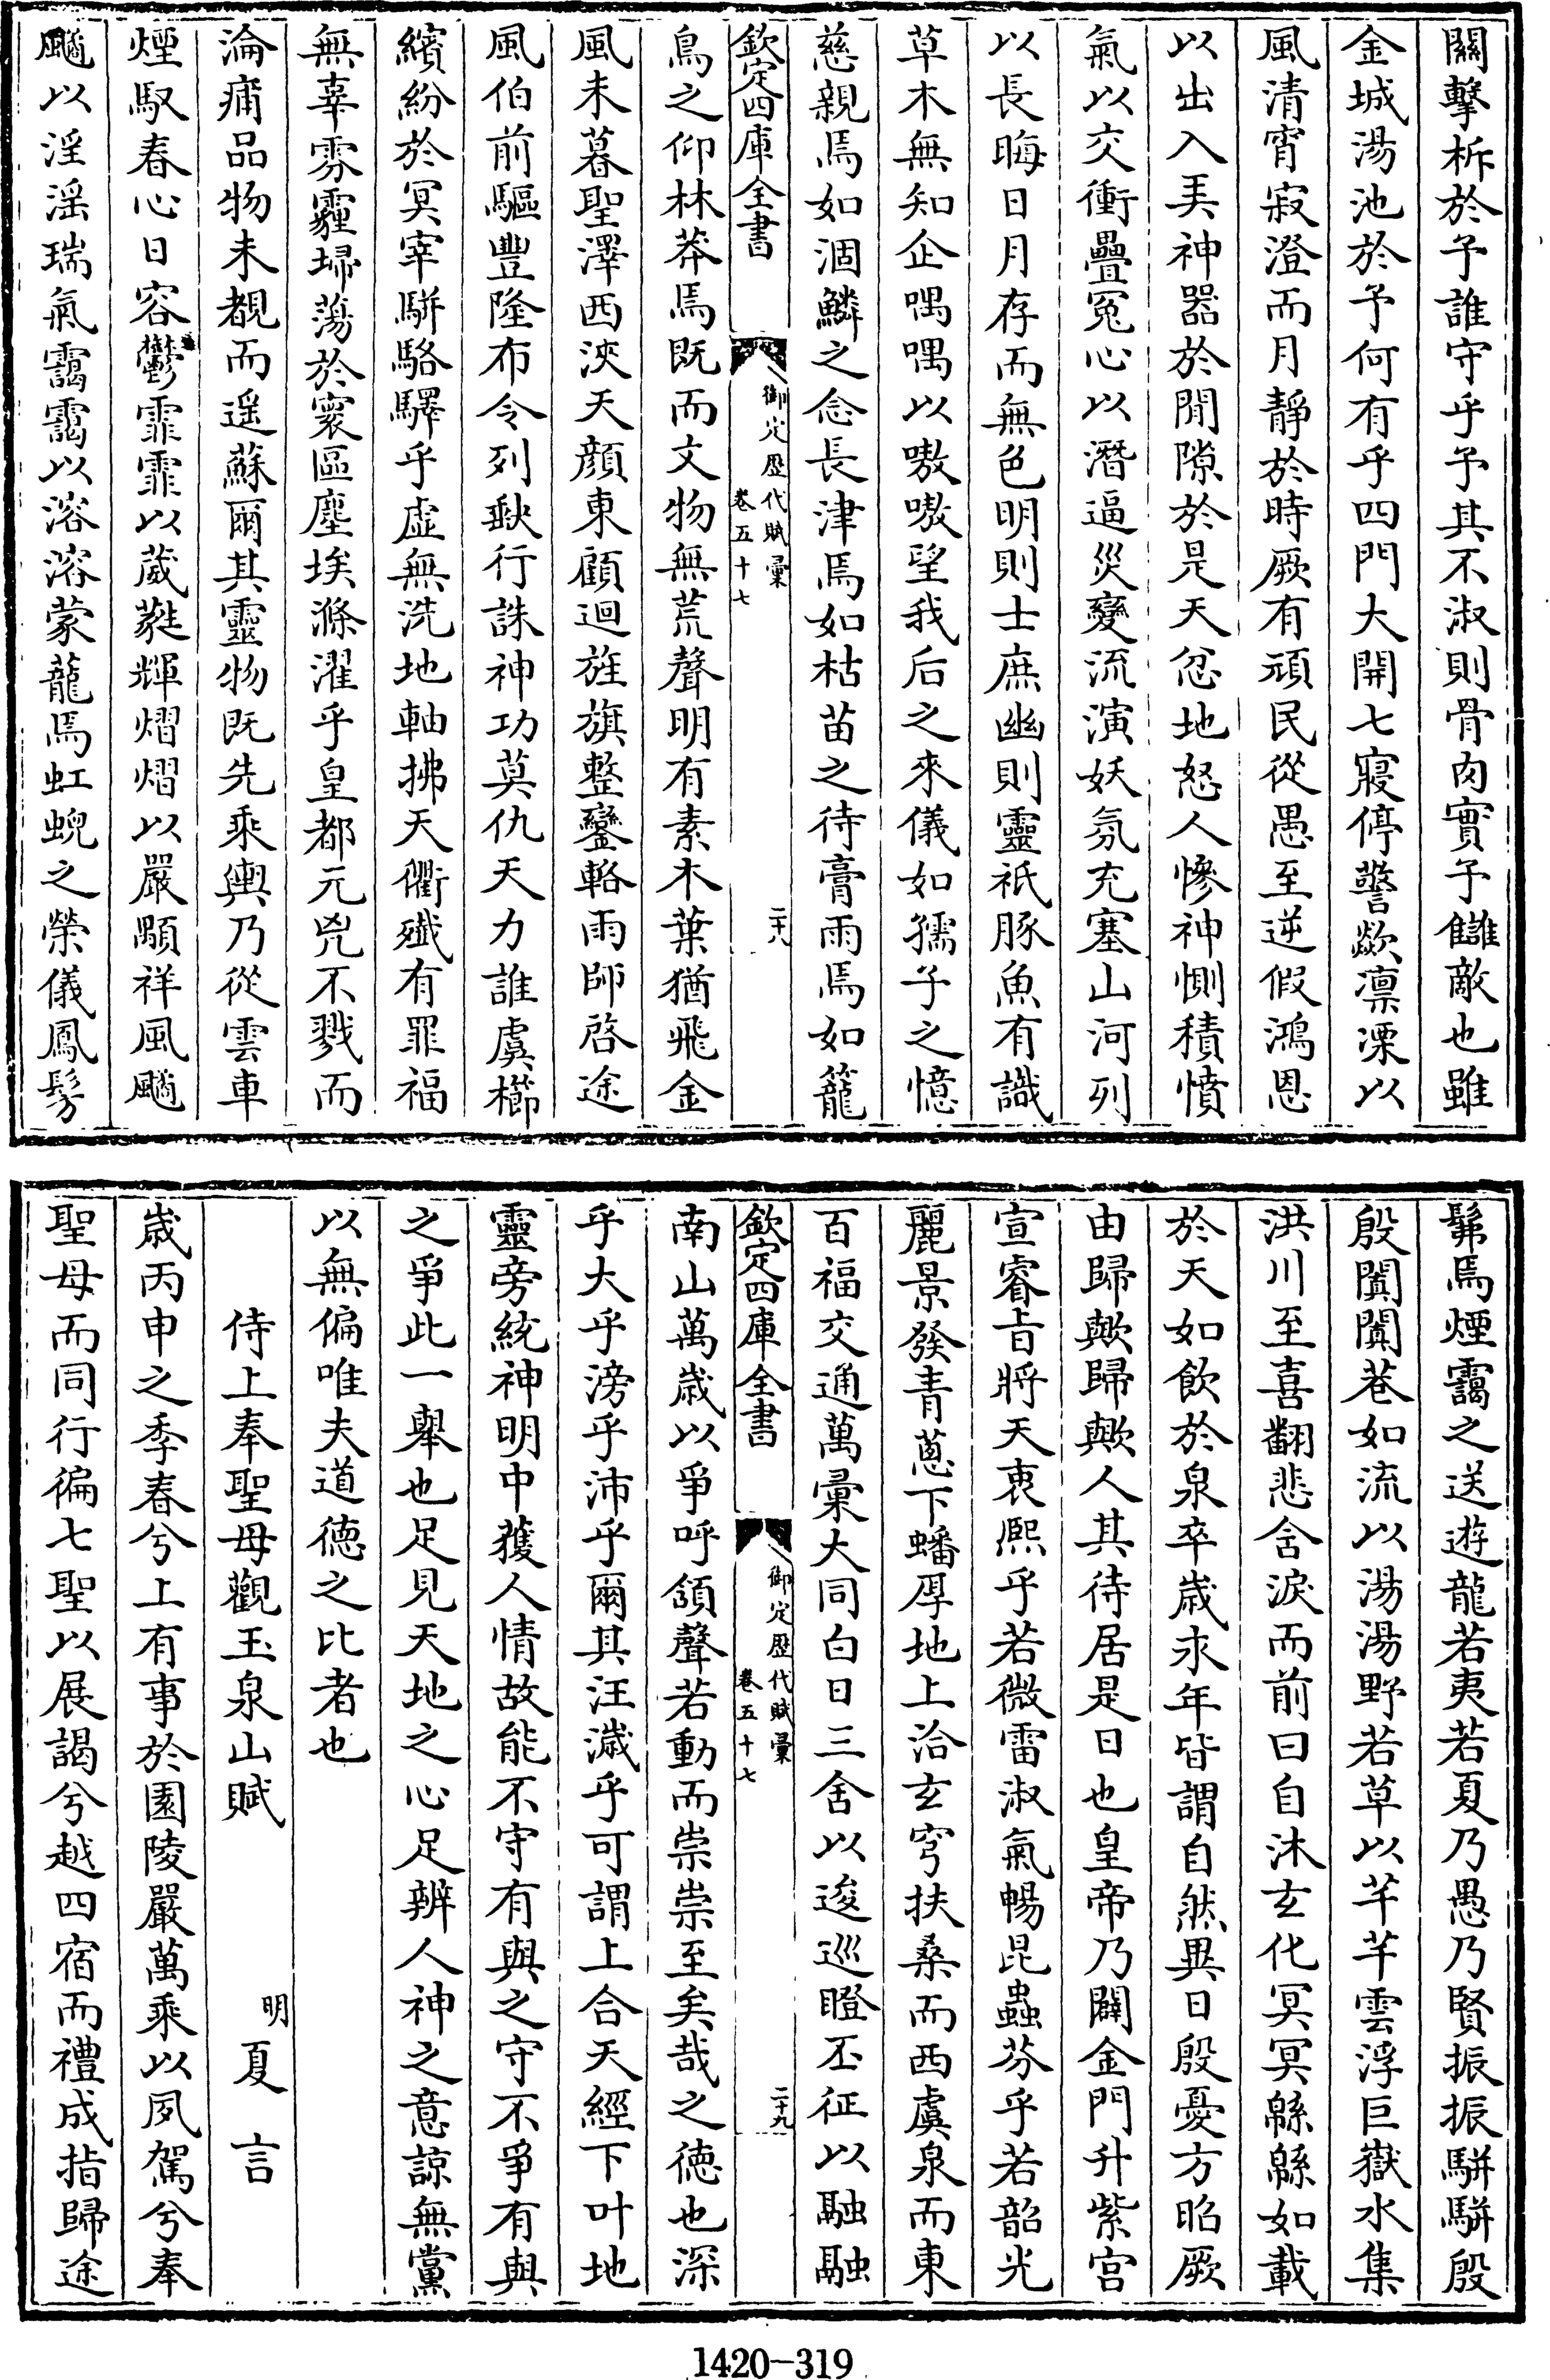 關擊柝於予誰守乎予其不淑則骨肉實予讎敵也雖
金城湯池於予何有乎四門大開七寢停警歘凛凓以
風清宵寂澄而月靜於時厥有頑民從愚至逆假鴻恩
以出入弄神器於閒隙於是天忿地怒人慘神惻積憤
氣以交衝疊冤心以潛逼災變流演妖氛充塞山河列
以長晦日月存而無色明則士庶幽則靈祇豚魚有識
草木無知企喁喁以嗷嗷望我后之來儀如孺子之憶
慈親焉如涸鱗之念長津焉如枯苗之待膏雨焉如籠
欽定四庫全書 御定歷代賦彙 卷五十七 二十八
鳥之仰林莽焉既而文物無荒聲明有素木葉猶飛金
風未暮聖澤西浹天顔東顧迴旌旗整鑾輅雨師啓途
風伯前驅豐隆布令列缺行誅神功莫仇天力誰虞櫛
繽紛於冥宰駢駱驛乎虛無洗地軸拂天衢殲有罪福
無辜雰霾埽蕩於寰區塵埃滌濯乎皇都元兇不戮而
淪痡品物未覩而遥蘇爾其靈物既先乘輿乃從雲車
煙馭春心日容鬱霏霏以葳蕤輝熠熠以嚴顒祥風颺
颺以淫淫瑞氣靄靄以溶溶蒙龍焉虹蜺之縈儀鳳髣
髴焉煙靄之送遊龍若夷若夏乃愚乃賢振振駢駢殷
殷闐闐巷如流以湯湯野若草以芊芊雲浮巨嶽水集
洪川至喜翻悲含淚而前曰自沐玄化冥冥緜緜如載
於天如飲於泉卒歲求年皆謂自然異日殷憂方昭厥
由歸歟歸歟人其待居是日也皇帝乃闢金門升紫宫
宣睿旨將天衷熙乎若微雷淑氣暢昆蟲芬乎若韶光
麗景發青蔥下蟠厚地上洽玄穹扶桑而西虞泉而東
百福交通萬彙大同白日三舍以逡巡瞪丕征以融融
欽定四庫全書 御定歷代賦彙 卷五十七 二十九
南山萬歲以爭呼頷聲若動而崇崇至矣哉之德也深
乎大乎滂乎沛乎爾其汪濊乎可謂上合天經下叶地
靈旁統神明中獲人情故能不守有與之守不爭有與
之爭此一舉也足見天地之心足辨人神之意諒無黨
以無偏唯夫道德之比者也
侍上奉聖母觀玉泉山賦 明夏言
歲丙申之季春兮上有事於園陵嚴萬乘以夙駕兮奉
聖母而同行徧七聖以展謁兮越四宿而禮成指歸途
1420-319